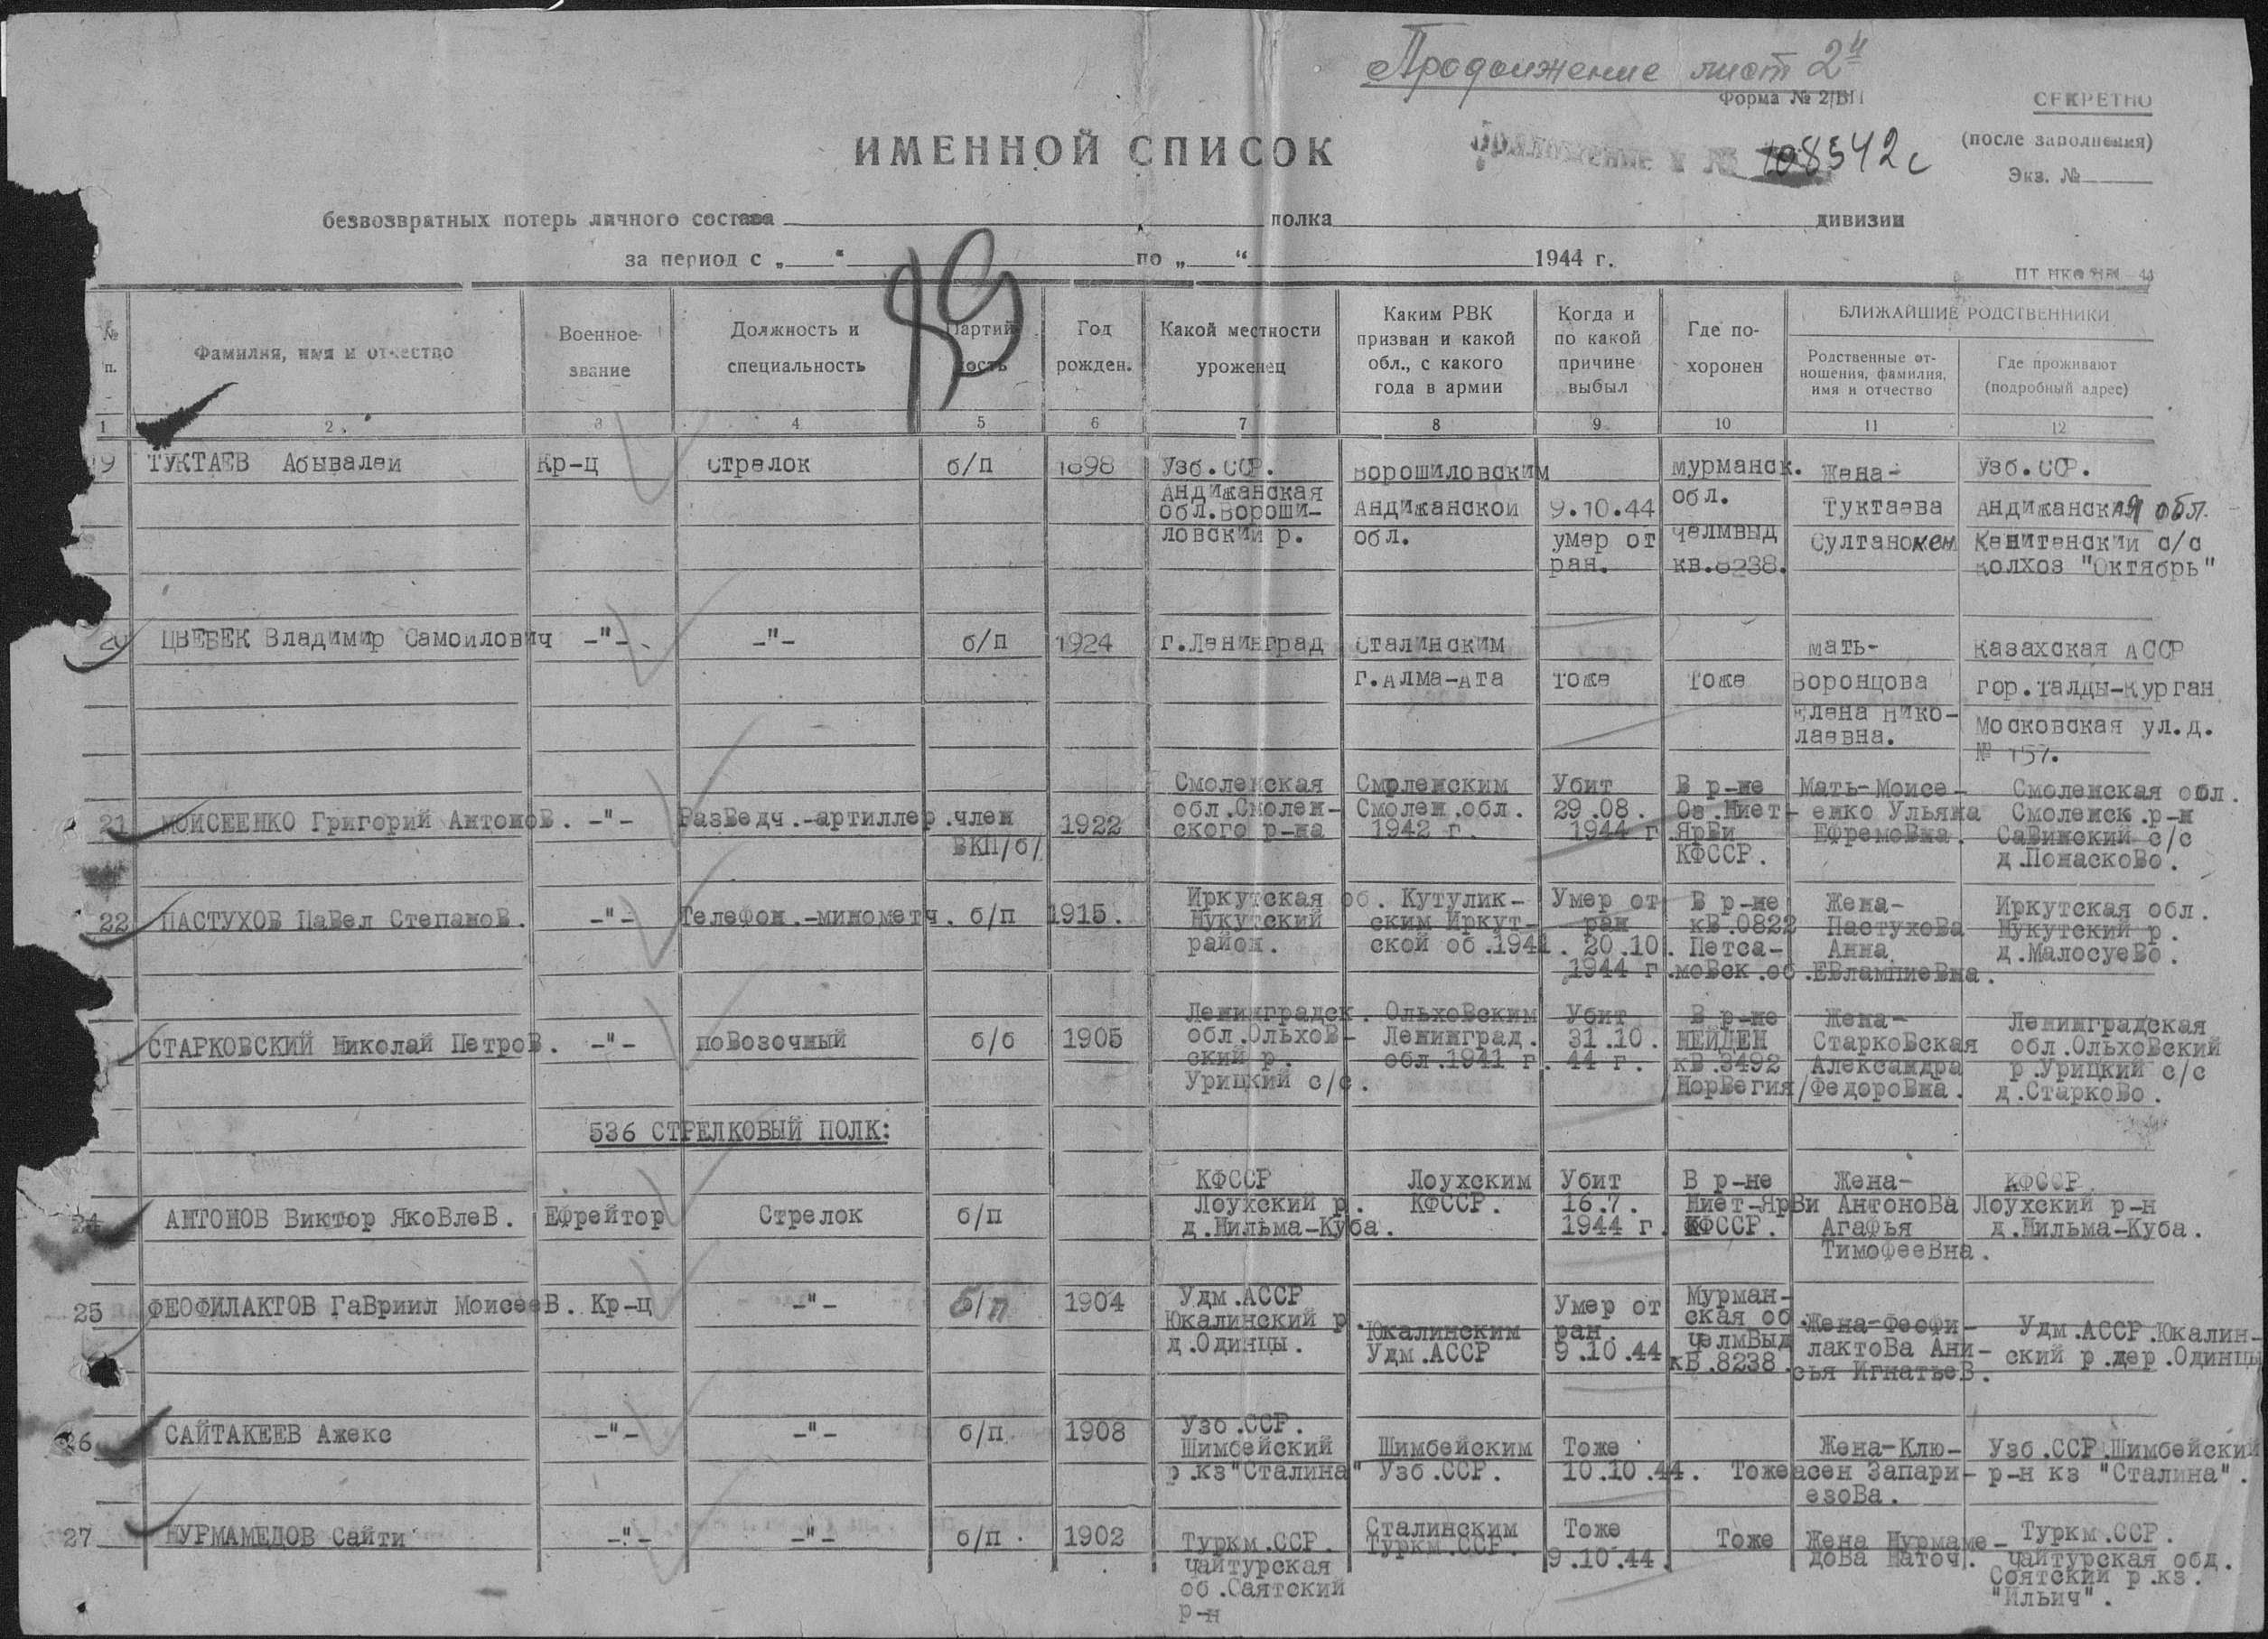 Продолжение лист 2й
Форма № 2/ВП
СЕКРЕТНО
(после заполнения)
Экз. №
ИМЕННОЙ СПИСОК
Приложение к № 108542с
безвозвратных потерь личного состава полка дивизии
за период с „ “ по „ “ 1944 г.
39
№ п.
Фамилия, имя и отчество
Военное звание
Должность и специальность
Партийность
Год рожден.
Какой местности уроженец
Каким РВК призван и какой обл., с какого года в армии
Когда и по какой причине выбыл
Где похоронен
БЛИЖАЙШИЕ РОДСТВЕННИКИ
Родственные отношения, фамилия, имя и отчество
Где проживают (подробный адрес)
1 2 3 4 5 6 7 8 9 10 11 12
19 ТУКТАЕВ Абывалеи Кр-ц стрелок б/п 1898 Узб.ССР. Ворошиловским мурманск. Жена- Узб.ССР.
Андижанская обл.Вороши- Андижанской 9.10.44 обл. Туктаева Андижанская обл.
ловский р. обл. умер от челмвыд Султанокем Кенитенский с/с
ран. кв.8238. колхоз "Октябрь"
20 ЦВЕБЕК Владимир Самоилович -"- -"- б/п 1924 г.Ленинград Сталинским мать- Казахская АССР
г.Алма-Ата тоже тоже Воронцова гор.Талды-Курган
Елена Нико- Московская ул.д.
лаевна. № 157.
Смоленская Смоленским Убит В р-не Мать-Моисе- Смоленская обл.
21 МОИСЕЕНКО Григорий Антонов. -"- Разведч.-артиллер. член 1922 обл.Смолен- Смолен.обл. 29.08. Оз.Ниет- енко Ульяна Смоленск.р-н
ВКП/б/ ского р-на 1942 г. 1944 г Ярви Ефремовна. Савинский с/с
КФССР. д.Понасково.
Иркутская об. Кутулик- Умер от В р-не Жена- Иркутская обл.
22 ПАСТУХОВ Павел Степанов. -"- Телефон.-минометч. б/п 1915. Нукутский ским Иркут- ран кв.0822 Пастухова Нукутский р.
район. ской об.1941. 20.10. Петса- Анна д.Малосуево.
1944 г. мовск.об. Евлампиевна.
Ленинградск. Ольховским Убит В р-не Жена- Ленинградская
СТАРКОВСКИЙ Николай Петров. -"- повозочный б/б 1905 обл.Ольхов- Ленинград. 31.10. НЕЙДЕН Старковская обл.Ольховский
ский р. обл.1941 г. 44 г. кв.3492 Александра р.Урицкий с/с
Урицкий с/с. /Норвегия/ Федоровна. д.Старково.
536 СТРЕЛКОВЫЙ ПОЛК:
КФССР Лоухским Убит В р-не Жена- КФССР.
24 АНТОНОВ Виктор Яковлев. Ефрейтор Стрелок б/п Лоухский р. КФССР. 16.7. Ниет-Ярви Антонова Лоухский р-н
д.Нильма-Куба. 1944 г. КФССР. Агафья д.Нильма-Куба.
Тимофеевна.
25 ФЕОФИЛАКТОВ Гавриил Моисеев. Кр-ц -"- б/п 1904 Удм.АССР Умер от Мурман-
Юкалинский р. Юкалинским ран. ская об. Жена-Феофи- Удм.АССР.Юкалин-
д.Одинцы. Удм.АССР 9.10.44 челмвыд лактова Ани- ский р.дер.Одинцы
кв.8238. сья Игнатьев.
26 САЙТАКЕЕВ Ажекс -"- -"- б/п 1908 Узб.ССР.
Шимбейский Шимбейским Тоже Жена-Клю- Узб.ССР.Шимбейский
р.кз"Сталина" Узб.ССР. 10.10.44. Тоже асен Запари- р-н кз "Сталина".
езова.
27 НУРМАМЕДОВ Сайти -"- -"- б/п. 1902 Туркм.ССР. Сталинским Тоже Тоже Жена Нурмаме- Туркм.ССР.
Чайтурская Туркм.ССР. 9.10.44. дова Наточ. Чайтурская обл.
об.Саятский Соятский р.кз.
р-н "Ильич".